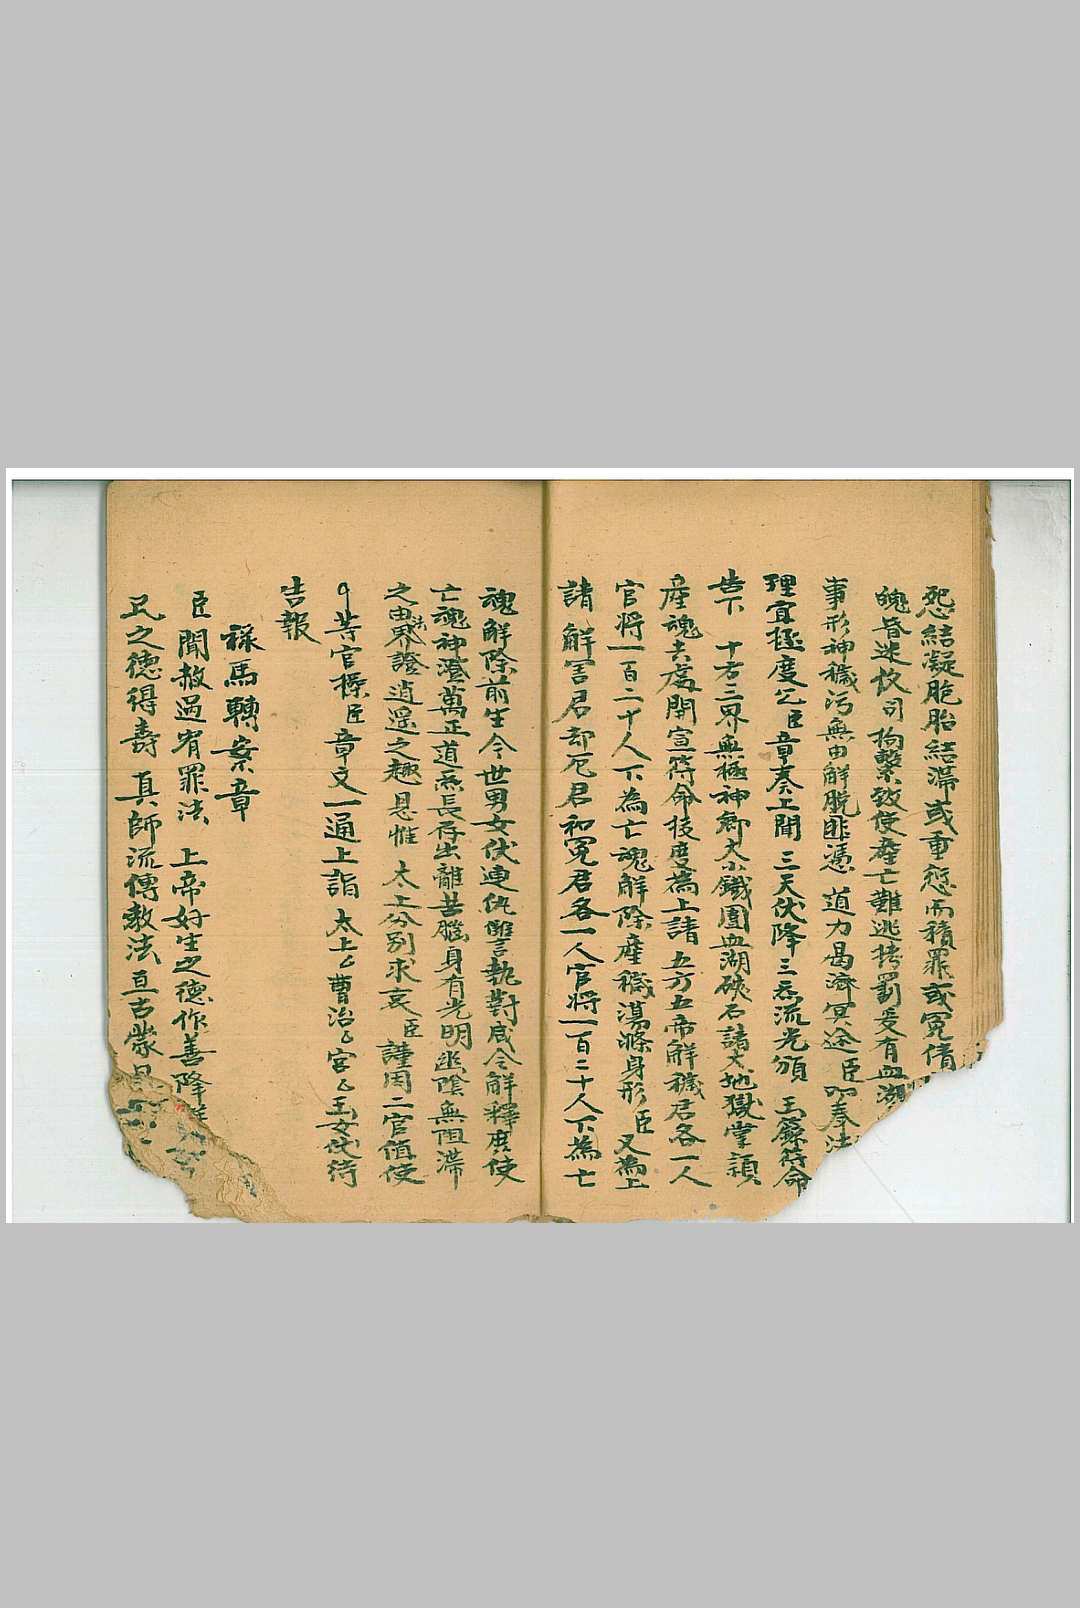 怨結凝胞胎結滯或重愆而積罪或冤債
魄昏迷攸司拘繫致使產亡難逃拷罰爰有血湖
事形神穢污無由解脫匪憑 道力曷濟冥途臣叨奉法
理宜拯度仝臣章奏上聞 三天伏降三炁流光頒 玉籙符命
告下 十方三界無極神鄉大小鐵圍血湖硤石諸大地獄掌
產魂去處開宣符命拔度為上請五方五帝解穢君各一人
官將一百二十人下為亡魂解除產穢蕩滌身形臣又為上
請 解害君却厄君和冤君各一人官將一百二十人下為亡
魂解除前生今世男女伏連仇讐執對咸令解釋庶使
亡魂神澄萬正道炁長存出離苦腦身有光明幽陰無阻滯
之由法界證逍遥之趣恩惟 太上分別求哀臣謹因二官值使
苦官操臣章文一通上詣 太上曹治宮玉女伏待
告報
祿馬轉案章
臣聞赦過宥罪法 上帝好生之德作善降
之德得壽 真師流傳教法亘古蒙